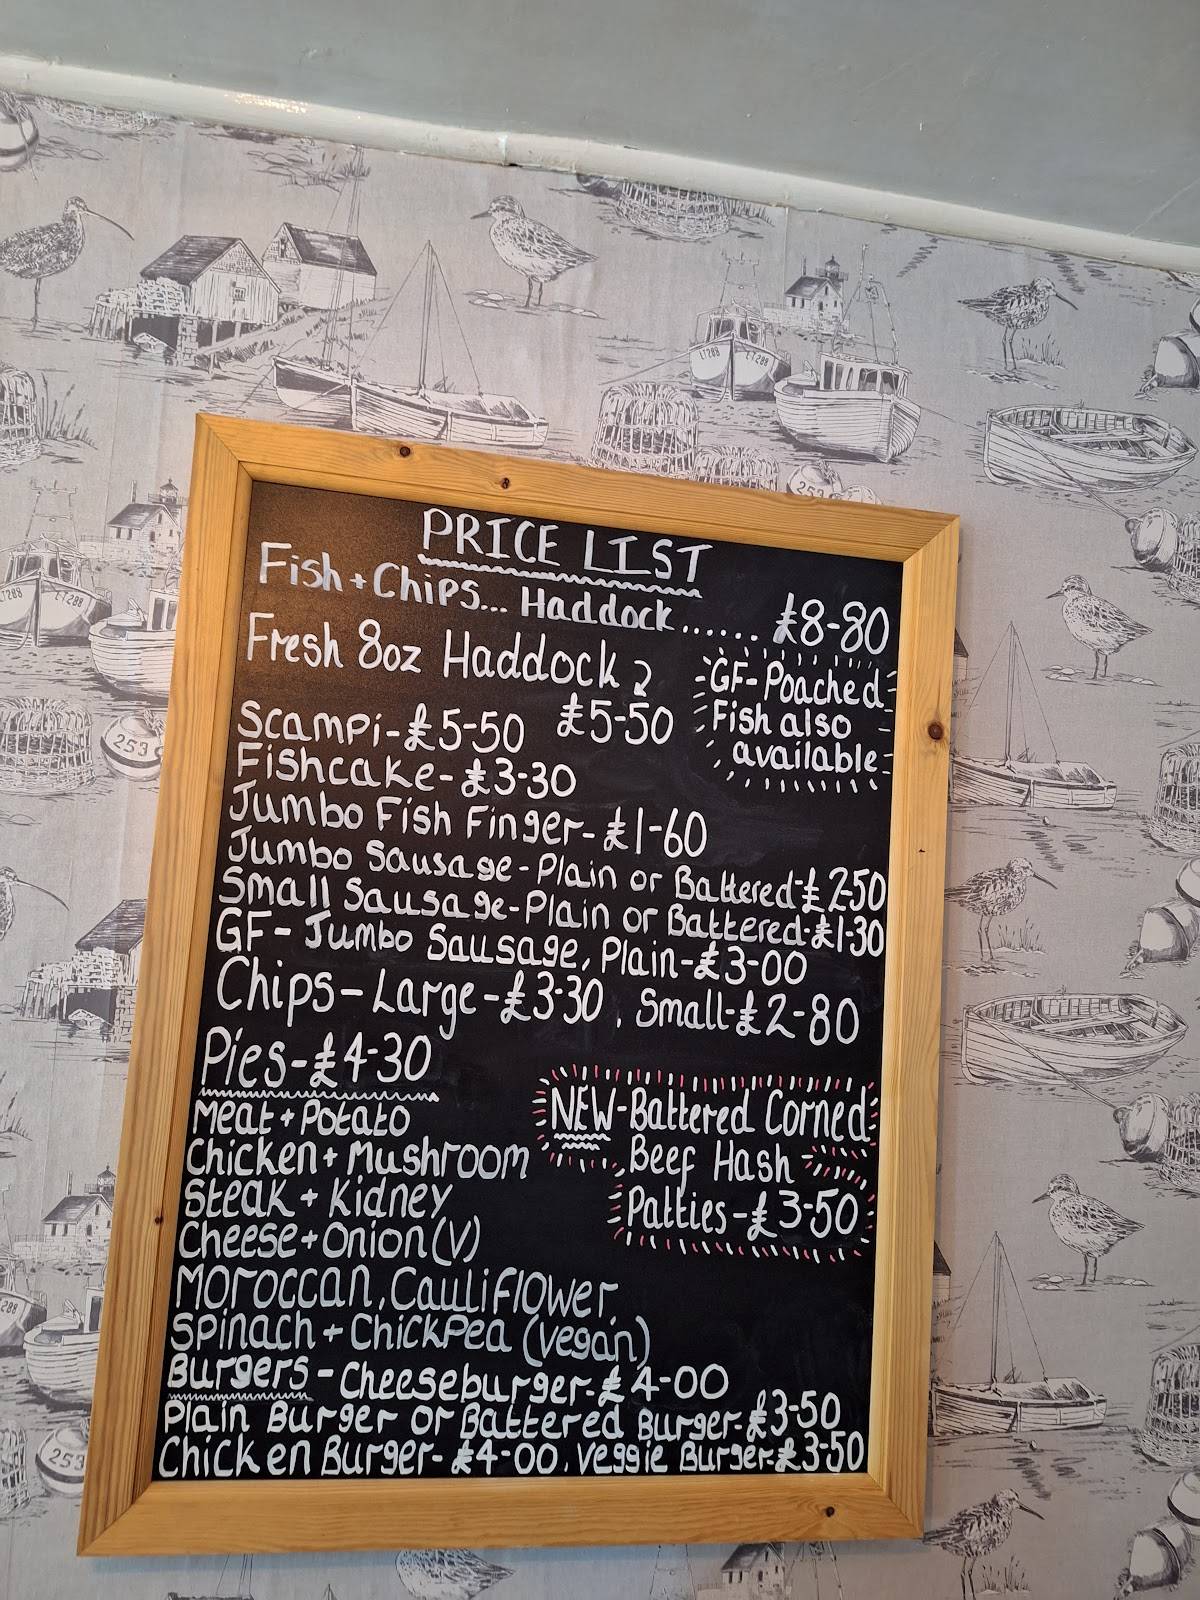 PRICE LIST
Fish + Chips... Haddock...... £8-80
Fresh 8oz Haddock
£5-50
GF-Poached
Fish also
available
Scampi-£5-50
Fishcake-£3-30
Jumbo Fish Finger-£1-60
Jumbo Sausage-Plain or Battered-£2-50
Small Sausage-Plain or Battered-£1-30
GF-Jumbo Sausage, Plain-£3-00
Chips-Large-£3-30, Small-£2-80
Pies-£4-30
Meat + Potato
Chicken + Mushroom
Steak + Kidney
Cheese + Onion (V)
Moroccan, Cauliflower,
Spinach + Chickpea (vegan)
NEW-Battered Corned
Beef Hash
Patties-£3-50
Burgers-Cheeseburger-£4-00
Plain Burger or Battered Burger-£3-50
Chicken Burger-£4-00, Veggie Burger-£3-50
LT288
LT288
253
LT288
253
288
253